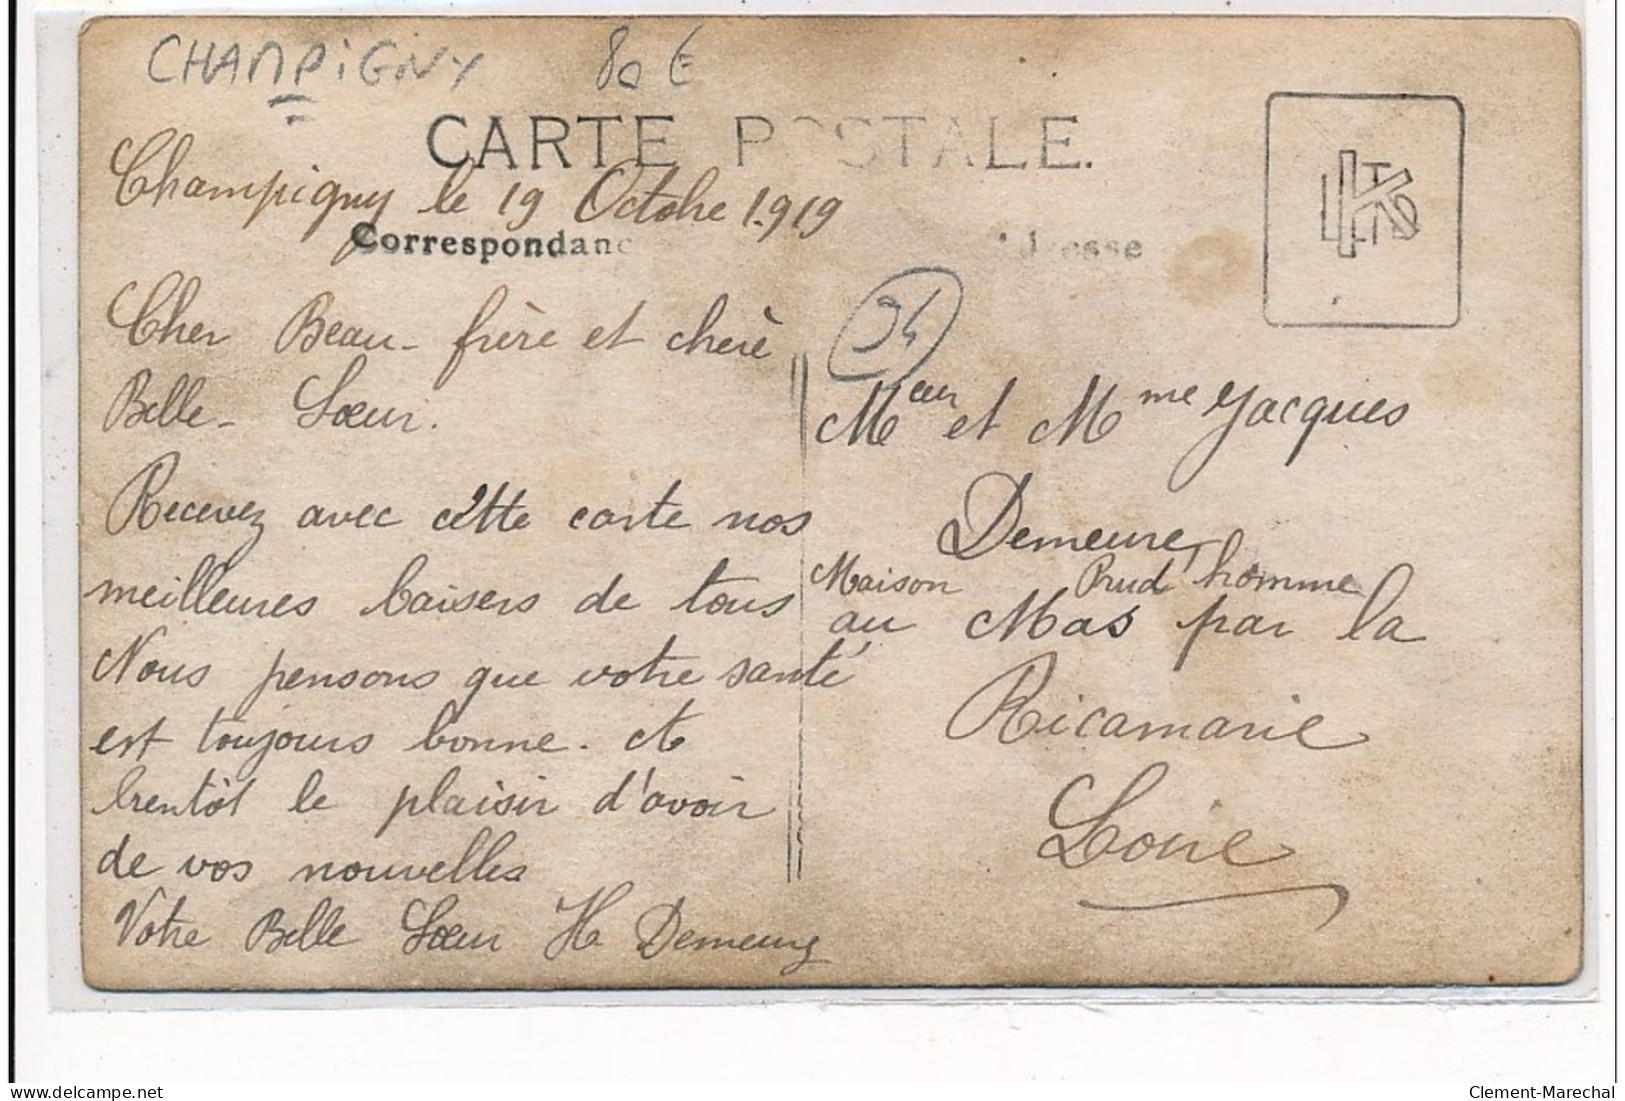 CHAMPIGNY 80 €
CARTE POSTALE.
Champigny le 19 Octobre 1.919
Correspondanc
Cher Beau-frère et cherè
Belle-Sœur.
Recevez avec cette carte nos
meilleures baisers de tous
Nous pensons que votre santé
est toujours bonne. et
bientôt le plaisir d'avoir
de vos nouvelles
Votre Belle Sœur H Demeure
94
Meur et Mme Jacques
Demeure
Maison Prud'homme
au Mas par la
Ricamarie
Loire
delcampe.net
Clement-Marechal